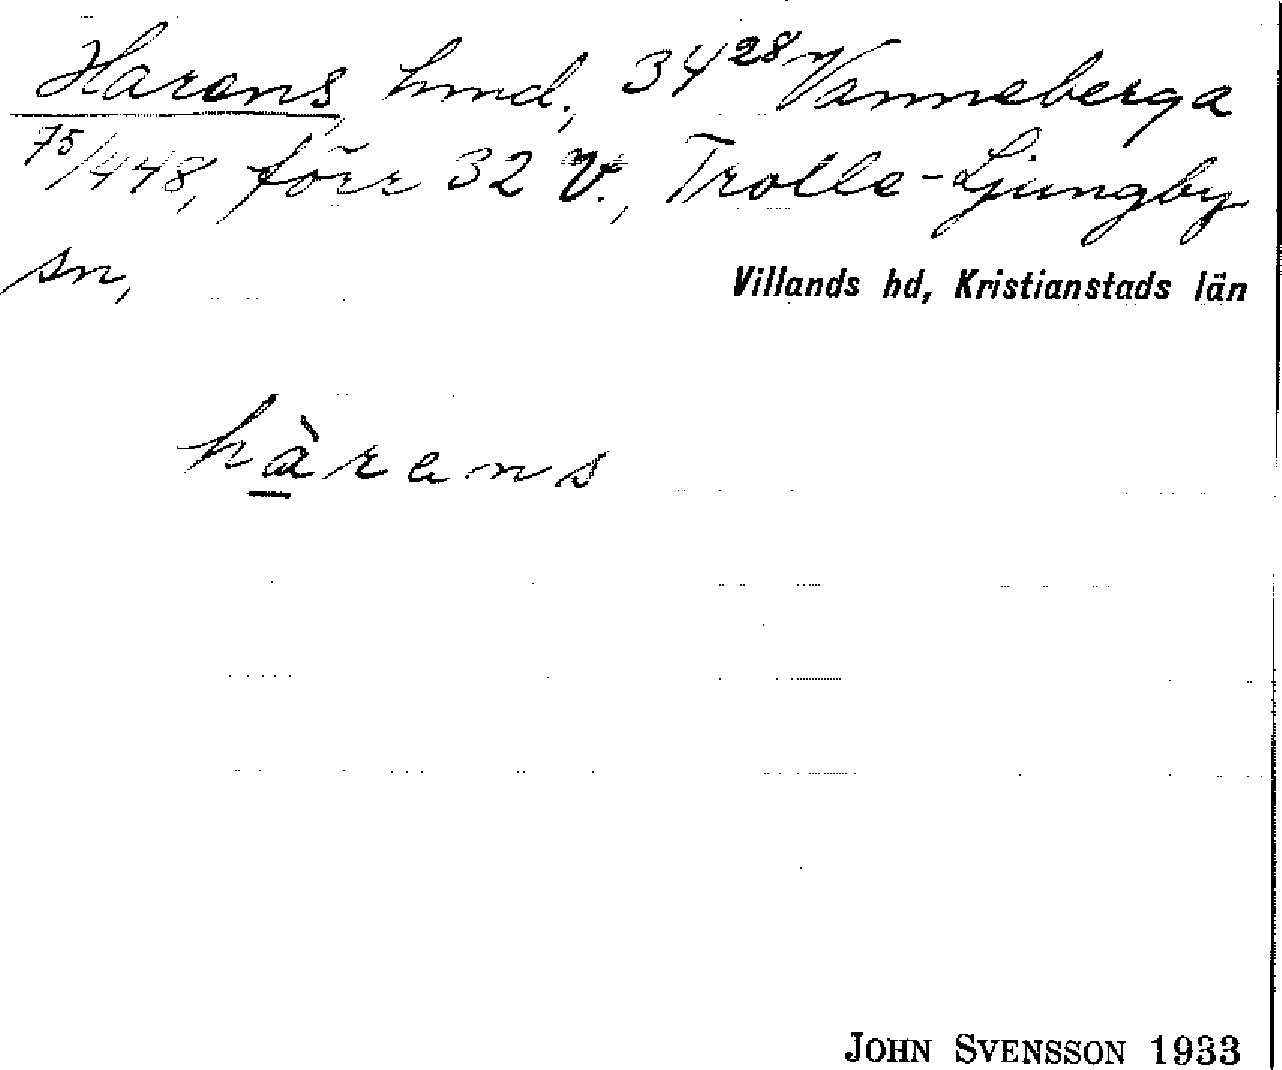 Harens, hmd., 34²⁸ Vanneberga
75/448, förr 32 V., Trolle-Ljungby
sn,
Villands hd, Kristianstads län
hà̱rens
JOHN SVENSSON 1933